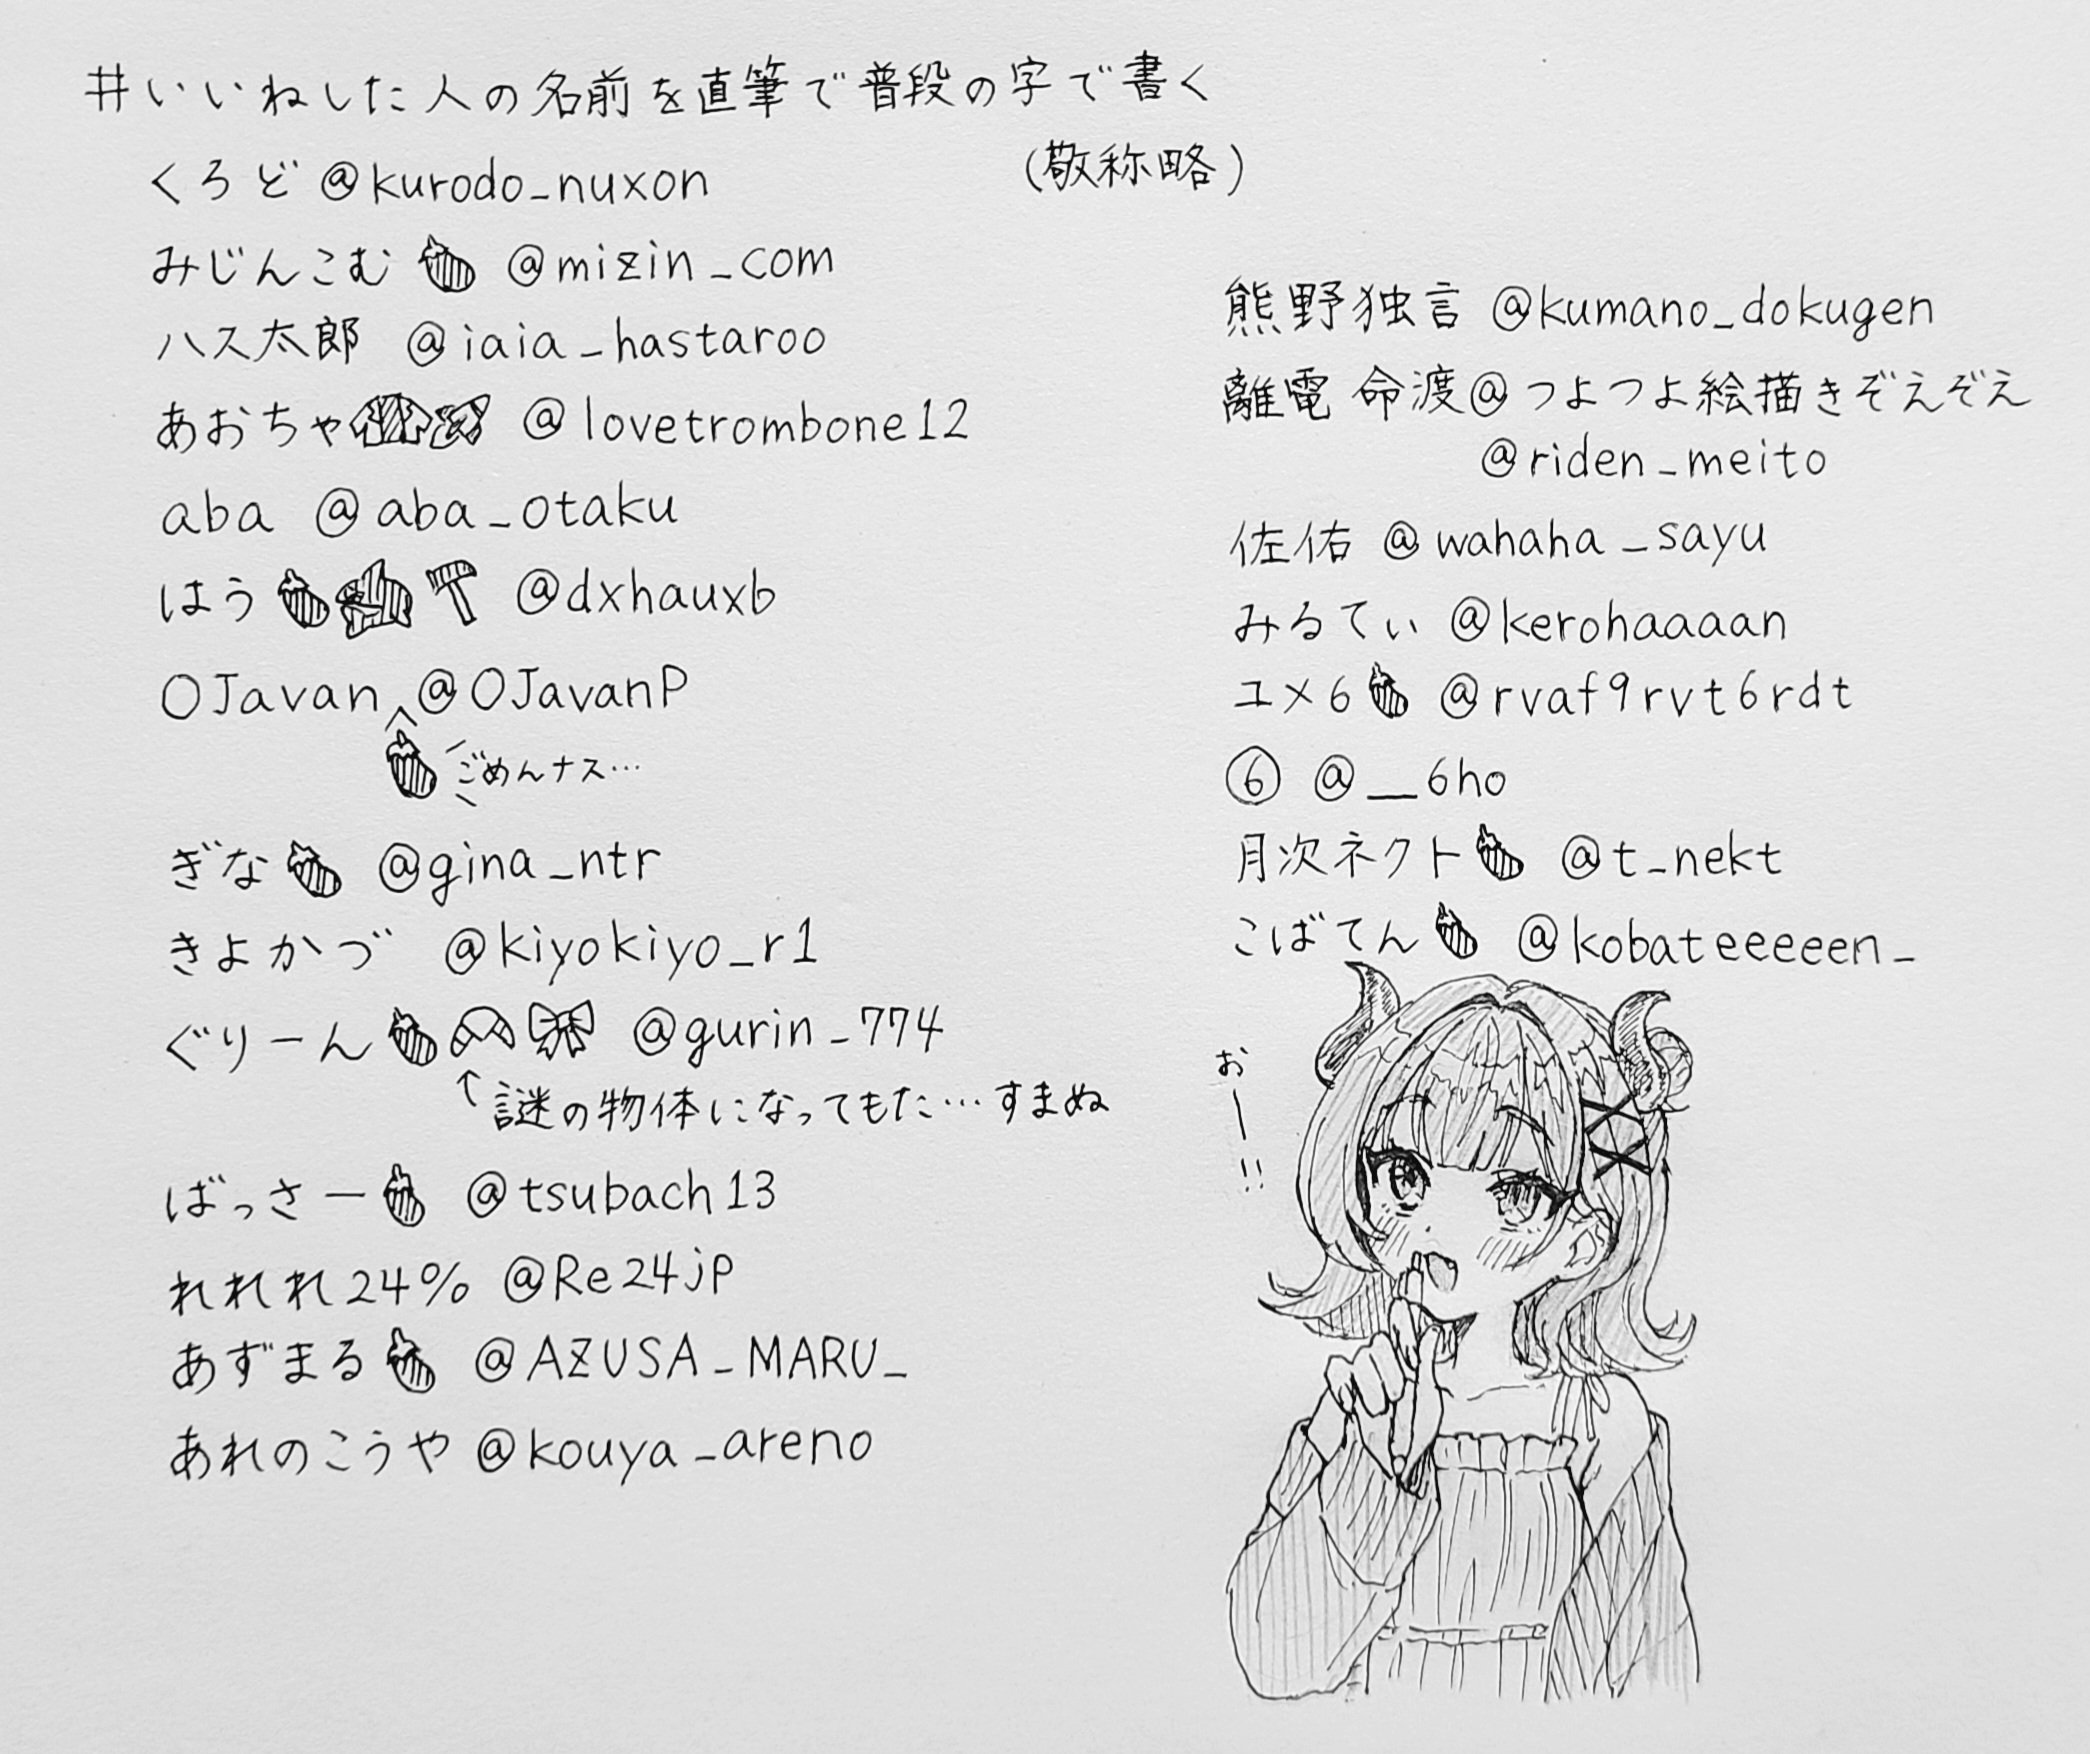 #いいねした人の名前を直筆で普段の字で書く
(敬称略)
くろど @kurodo_nuxon
みじんこむ🍆 @mizin_com
ハス太郎 @iaia_hastaroo
あおちゃ @lovetrombone12
aba @aba_otaku
はう🍆 @dxhauxb
OJavan @OJavanP
🍆 ごめんナス…
ぎな🍆 @gina_ntr
きよかづ @kiyokiyo_r1
ぐりーん🍆🥐🎀 @gurin_774
↑謎の物体になってもた…すまぬ
ばっさー🍆 @tsubach13
れれれ24% @Re24jp
あずまる🍆 @AZUSA_MARU_
あれのこうや @kouya_areno
熊野独言 @kumano_dokugen
離電 命渡@つよつよ絵描きぞえぞえ
@riden_meito
佐佑 @wahaha_sayu
みるてぃ @kerohaaaan
ユメ6🍆 @rvaf9rvt6rdt
⑥ @__6ho
月次ネクト🍆 @t_nekt
こばてん🍆 @kobateeeeen_
おー!!